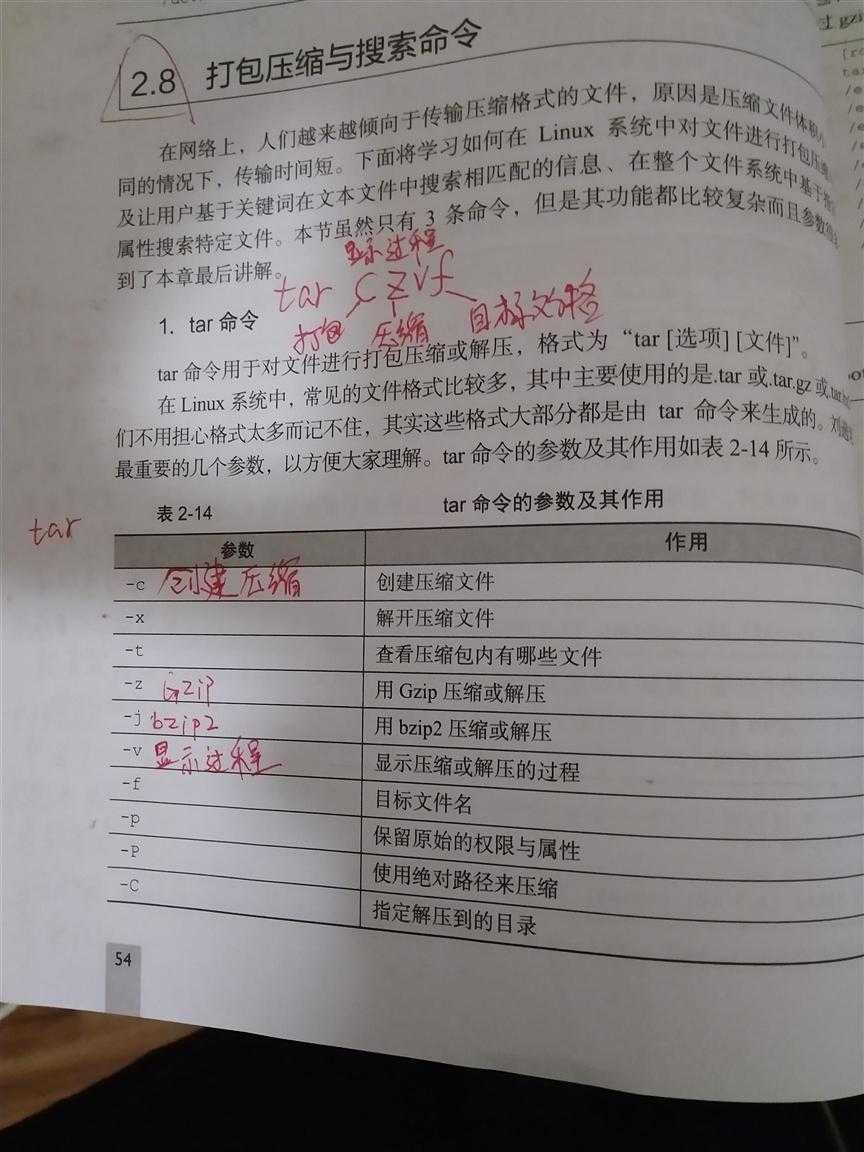 2.8 打包压缩与搜索命令
在网络上，人们越来越倾向于传输压缩格式的文件，原因是压缩文件体积
同的情况下，传输时间短。下面将学习如何在 Linux 系统中对文件进行打包压
及让用户基于关键词在文本文件中搜索相匹配的信息、在整个文件系统中基于
属性搜索特定文件。本节虽然只有 3 条命令，但是其功能都比较复杂而且参数
到了本章最后讲解。
显示过程
tar czvf
打包 压缩 目标文件
1. tar 命令
tar 命令用于对文件进行打包压缩或解压，格式为“tar [选项] [文件]”。
在 Linux 系统中，常见的文件格式比较多，其中主要使用的是.tar 或.tar.gz 或
们不用担心格式太多而记不住，其实这些格式大部分都是由 tar 命令来生成的。刘
最重要的几个参数，以方便大家理解。tar 命令的参数及其作用如表 2-14 所示。
tar
表 2-14 tar 命令的参数及其作用
参数 作用
-c 创建压缩 创建压缩文件
-x 解开压缩文件
-t 查看压缩包内有哪些文件
-z Gzip 用 Gzip 压缩或解压
-j bzip2 用 bzip2 压缩或解压
-v 显示过程 显示压缩或解压的过程
-f 目标文件名
-p 保留原始的权限与属性
-P 使用绝对路径来压缩
-C 指定解压到的目录
54